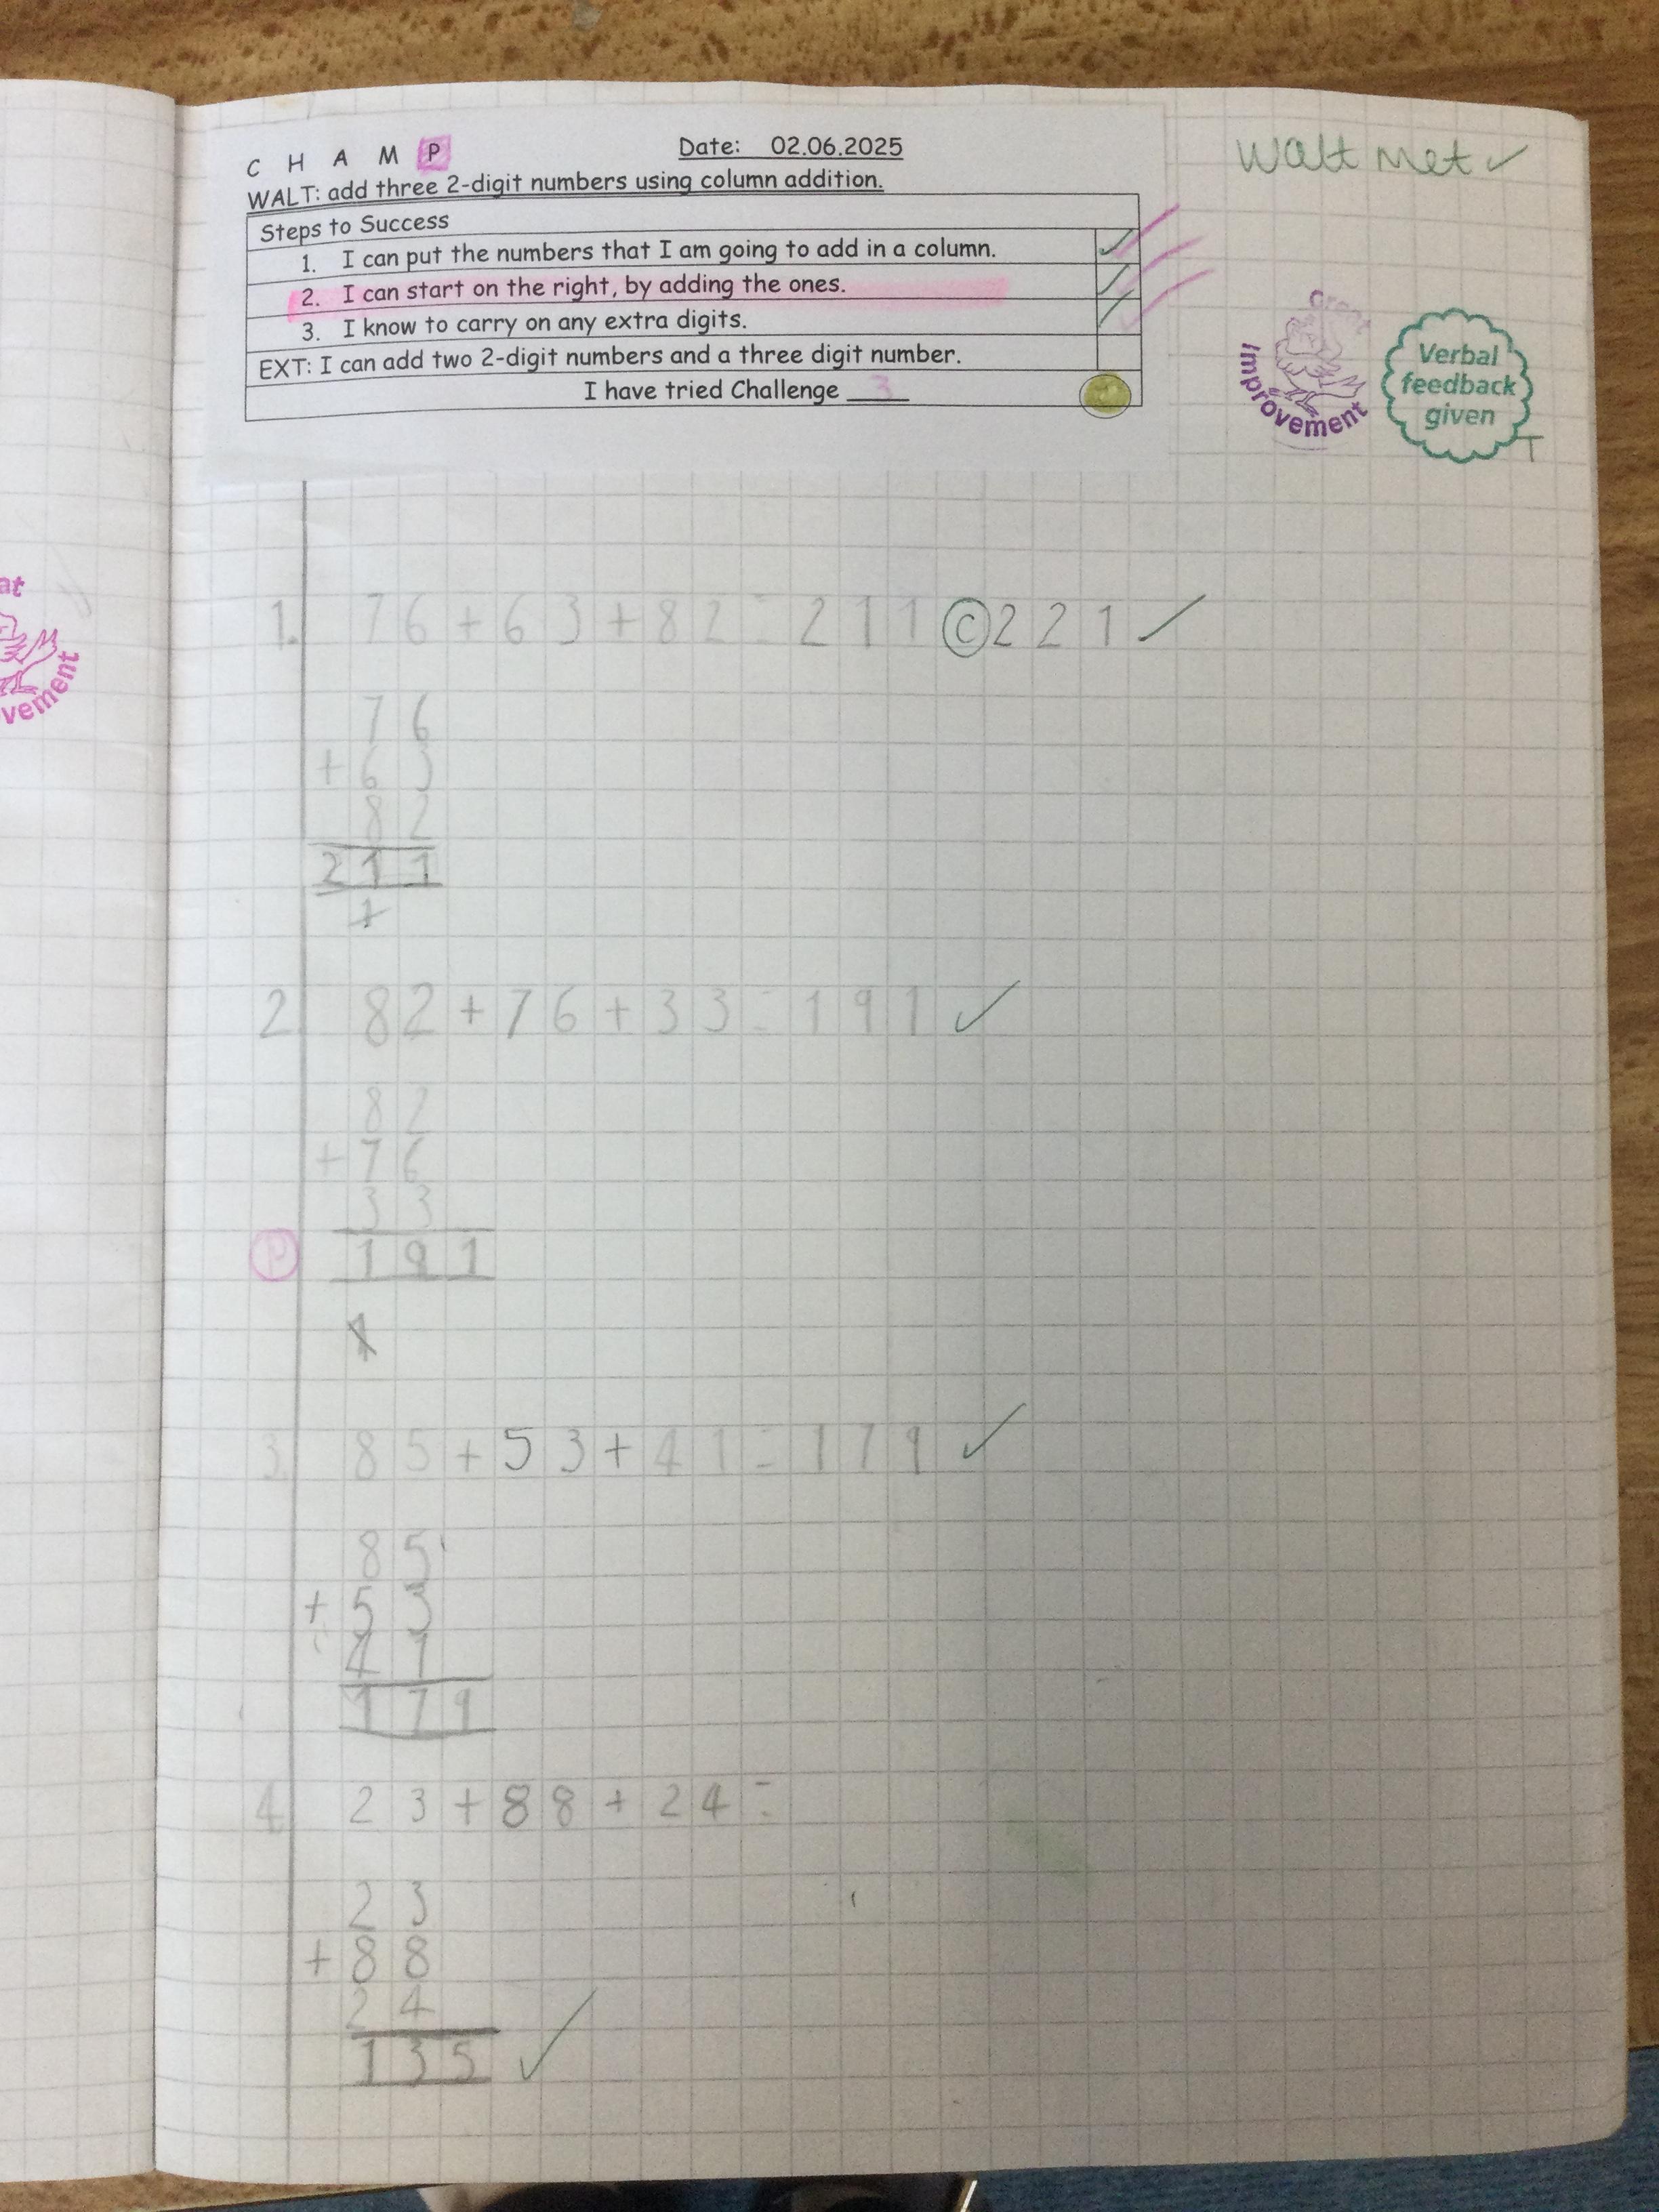 C H A M P
Date: 02.06.2025
WALT: add three 2-digit numbers using column addition.
Walt met ✓
Steps to Success
1. I can put the numbers that I am going to add in a column.
2. I can start on the right, by adding the ones.
3. I know to carry on any extra digits.
EXT: I can add two 2-digit numbers and a three digit number.
I have tried Challenge 3
Great
Improvement
Verbal
feedback
given
T
at
vement
1. 76+63+82=211 © 221 ✓
76
+63
82
211
1
2 82+76+33=191 ✓
82
+76
33
P 191
1
3. 85+53+41=179 ✓
85
+53
41
179
4 23+88+24=
23
+88
24
135 ✓